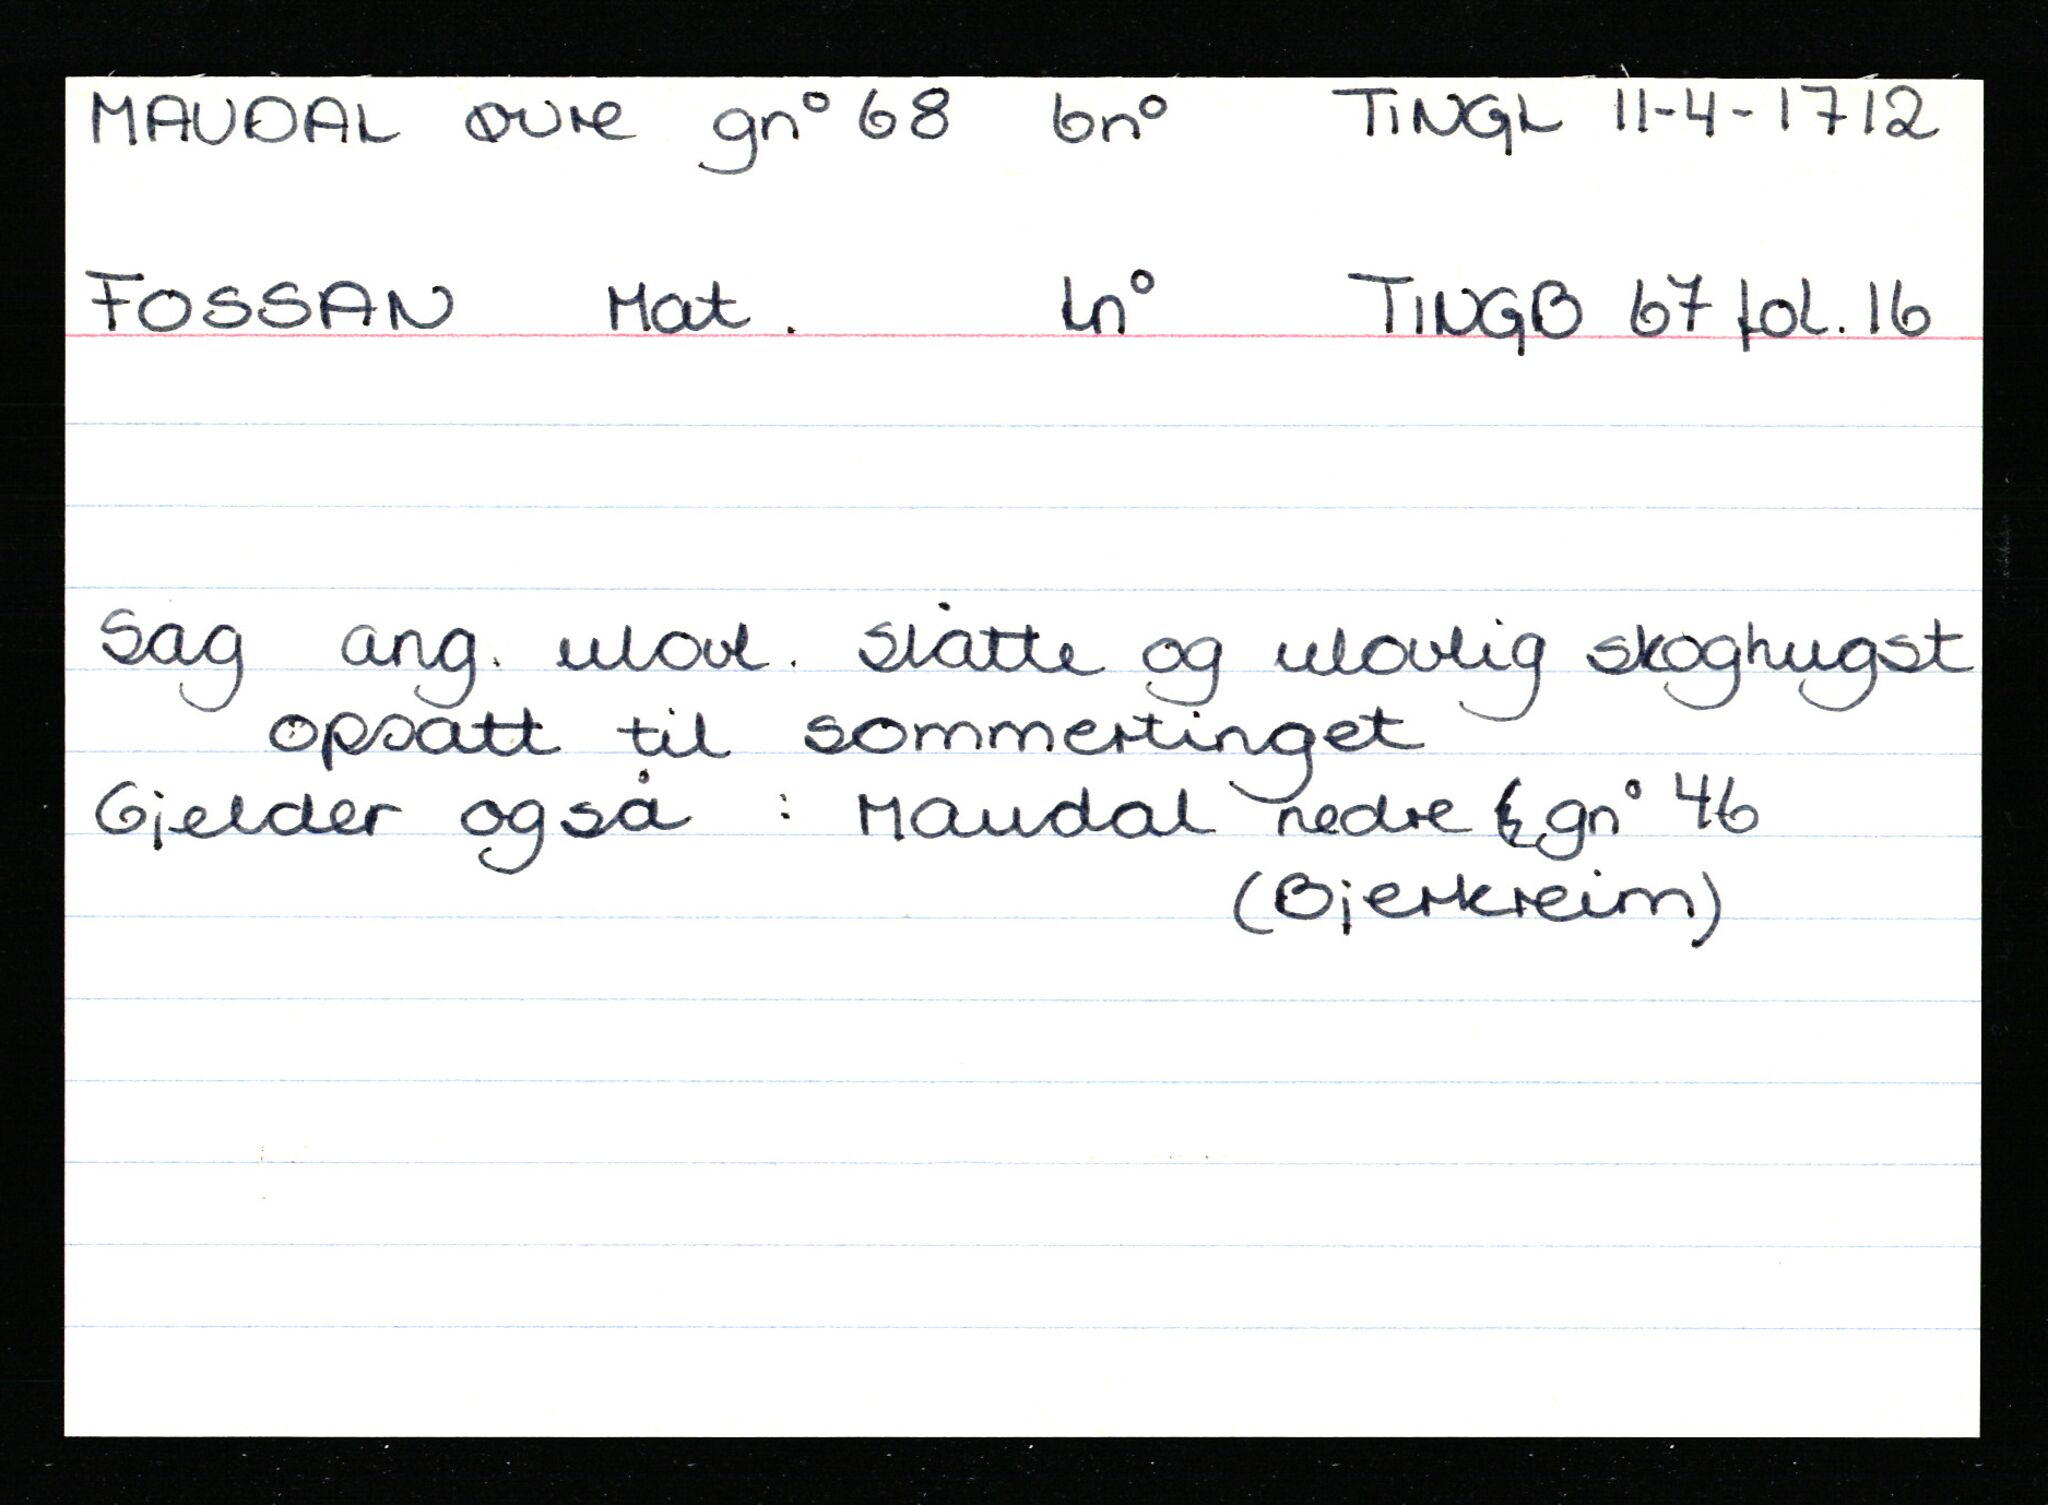 MAUDAL ØVRE gn° 68 bn° TINGL 11-4-1712
FOSSAN Mat. Ln° TINGB 67 fol. 16
Sag ang. ulovl. slåtte og ulovlig skoghugst
opsatt til sommertinget
Gjelder også : Maudal nedre gn° 46
(Bjerkreim)